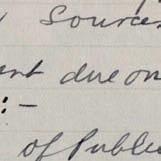 Sources
ent due on
:-
of Public